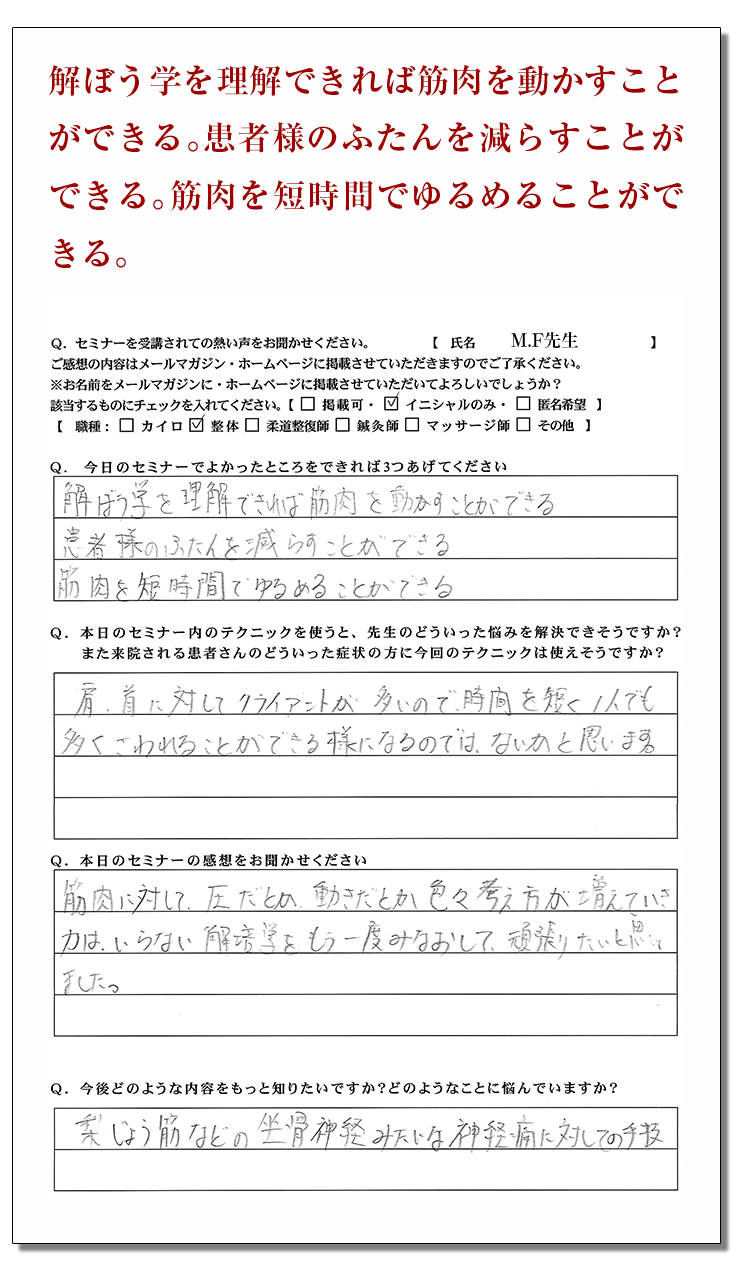 解ぼう学を理解できれば筋肉を動かすこと
ができる。患者様のふたんを減らすことが
できる。筋肉を短時間でゆるめることがで
きる。
Q. セミナーを受講されての熱い声をお聞かせください。 【 氏名 M.F先生 】
ご感想の内容はメールマガジン・ホームページに掲載させていただきますのでご了承ください。
※お名前をメールマガジンに・ホームページに掲載させていただいてよろしいでしょうか?
該当するものにチェックを入れてください。【 □ 掲載可・ ☑ イニシャルのみ・ □ 匿名希望 】
【 職種: □ カイロ ☑ 整体 □ 柔道整復師 □ 鍼灸師 □ マッサージ師 □ その他 】
Q. 今日のセミナーでよかったところをできれば3つあげてください
解ぼう学を理解できれば筋肉を動かすことができる
患者様のふたんを減らすことができる
筋肉を短時間でゆるめることができる
Q. 本日のセミナー内のテクニックを使うと、先生のどういった悩みを解決できそうですか?
また来院される患者さんのどういった症状の方に今回のテクニックは使えそうですか?
肩、首に対してクライアントが多いので、時間を短く1人でも
多くさわれることができる様になるのでは、ないかと思います
Q. 本日のセミナーの感想をお聞かせください
筋肉に対して、圧だとか、動きだとか色々考え方が増えていき
力は、いらない 解培学をもう一度みなおして、頑張りたいと思って
ました。
Q. 今後どのような内容をもっと知りたいですか?どのようなことに悩んでいますか?
梨じょう筋などの坐骨神経みたいな神経痛に対しての手技